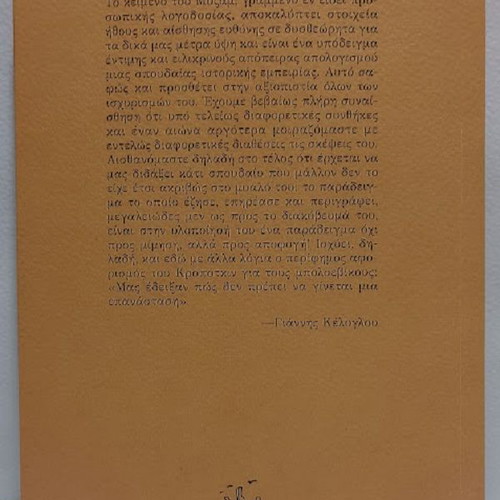 Το κείμενο του Μοζάμ, γραμμένο εν είδει προ-
σωπικής λογοδοσίας, αποκαλύπτει στοιχεία
ήθους και αίσθησης ευθύνης σε δυσθεώρητα για
τα δικά μας μέτρα ύψη και είναι ένα υπόδειγμα
έντιμης και ειλικρινούς απόπειρας απολογισμού
μιας σπουδαίας ιστορικής εμπειρίας. Αυτό σα-
φώς και προσθέτει στην αξιοπιστία όλων των
ισχυρισμών του. Έχουμε βεβαίως πλήρη συναί-
σθηση ότι υπό τελείως διαφορετικές συνθήκες
και έναν αιώνα αργότερα μοιραζόμαστε με
εντελώς διαφορετικές διαθέσεις τις σκέψεις του.
Αισθανόμαστε δηλαδή στο τέλος ότι έρχεται να
μας διδάξει κάτι σπουδαίο που μάλλον δεν το
είχε έτσι ακριβώς στο μυαλό του: το παράδειγ-
μα το οποίο έζησε, επηρέασε και περιγράφει,
μεγαλειώδες μεν ως προς το διακύβευμά του,
είναι στην υλοποίησή του ένα παράδειγμα όχι
προς μίμηση, αλλά προς αποφυγή! Ισχύει, δη-
λαδή, και εδώ με άλλα λόγια ο περίφημος αφο-
ρισμός του Κροπότκιν για τους μπολσεβίκους:
«Μας έδειξαν πώς δεν πρέπει να γίνεται μια
επανάσταση»
—Γιάννης Κέλογλου